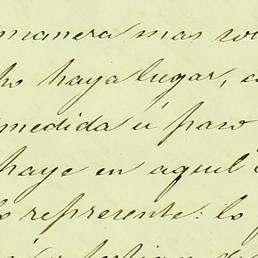 manera mas
haya lugar,
medida ú paso
haye en aquel
represente: lo